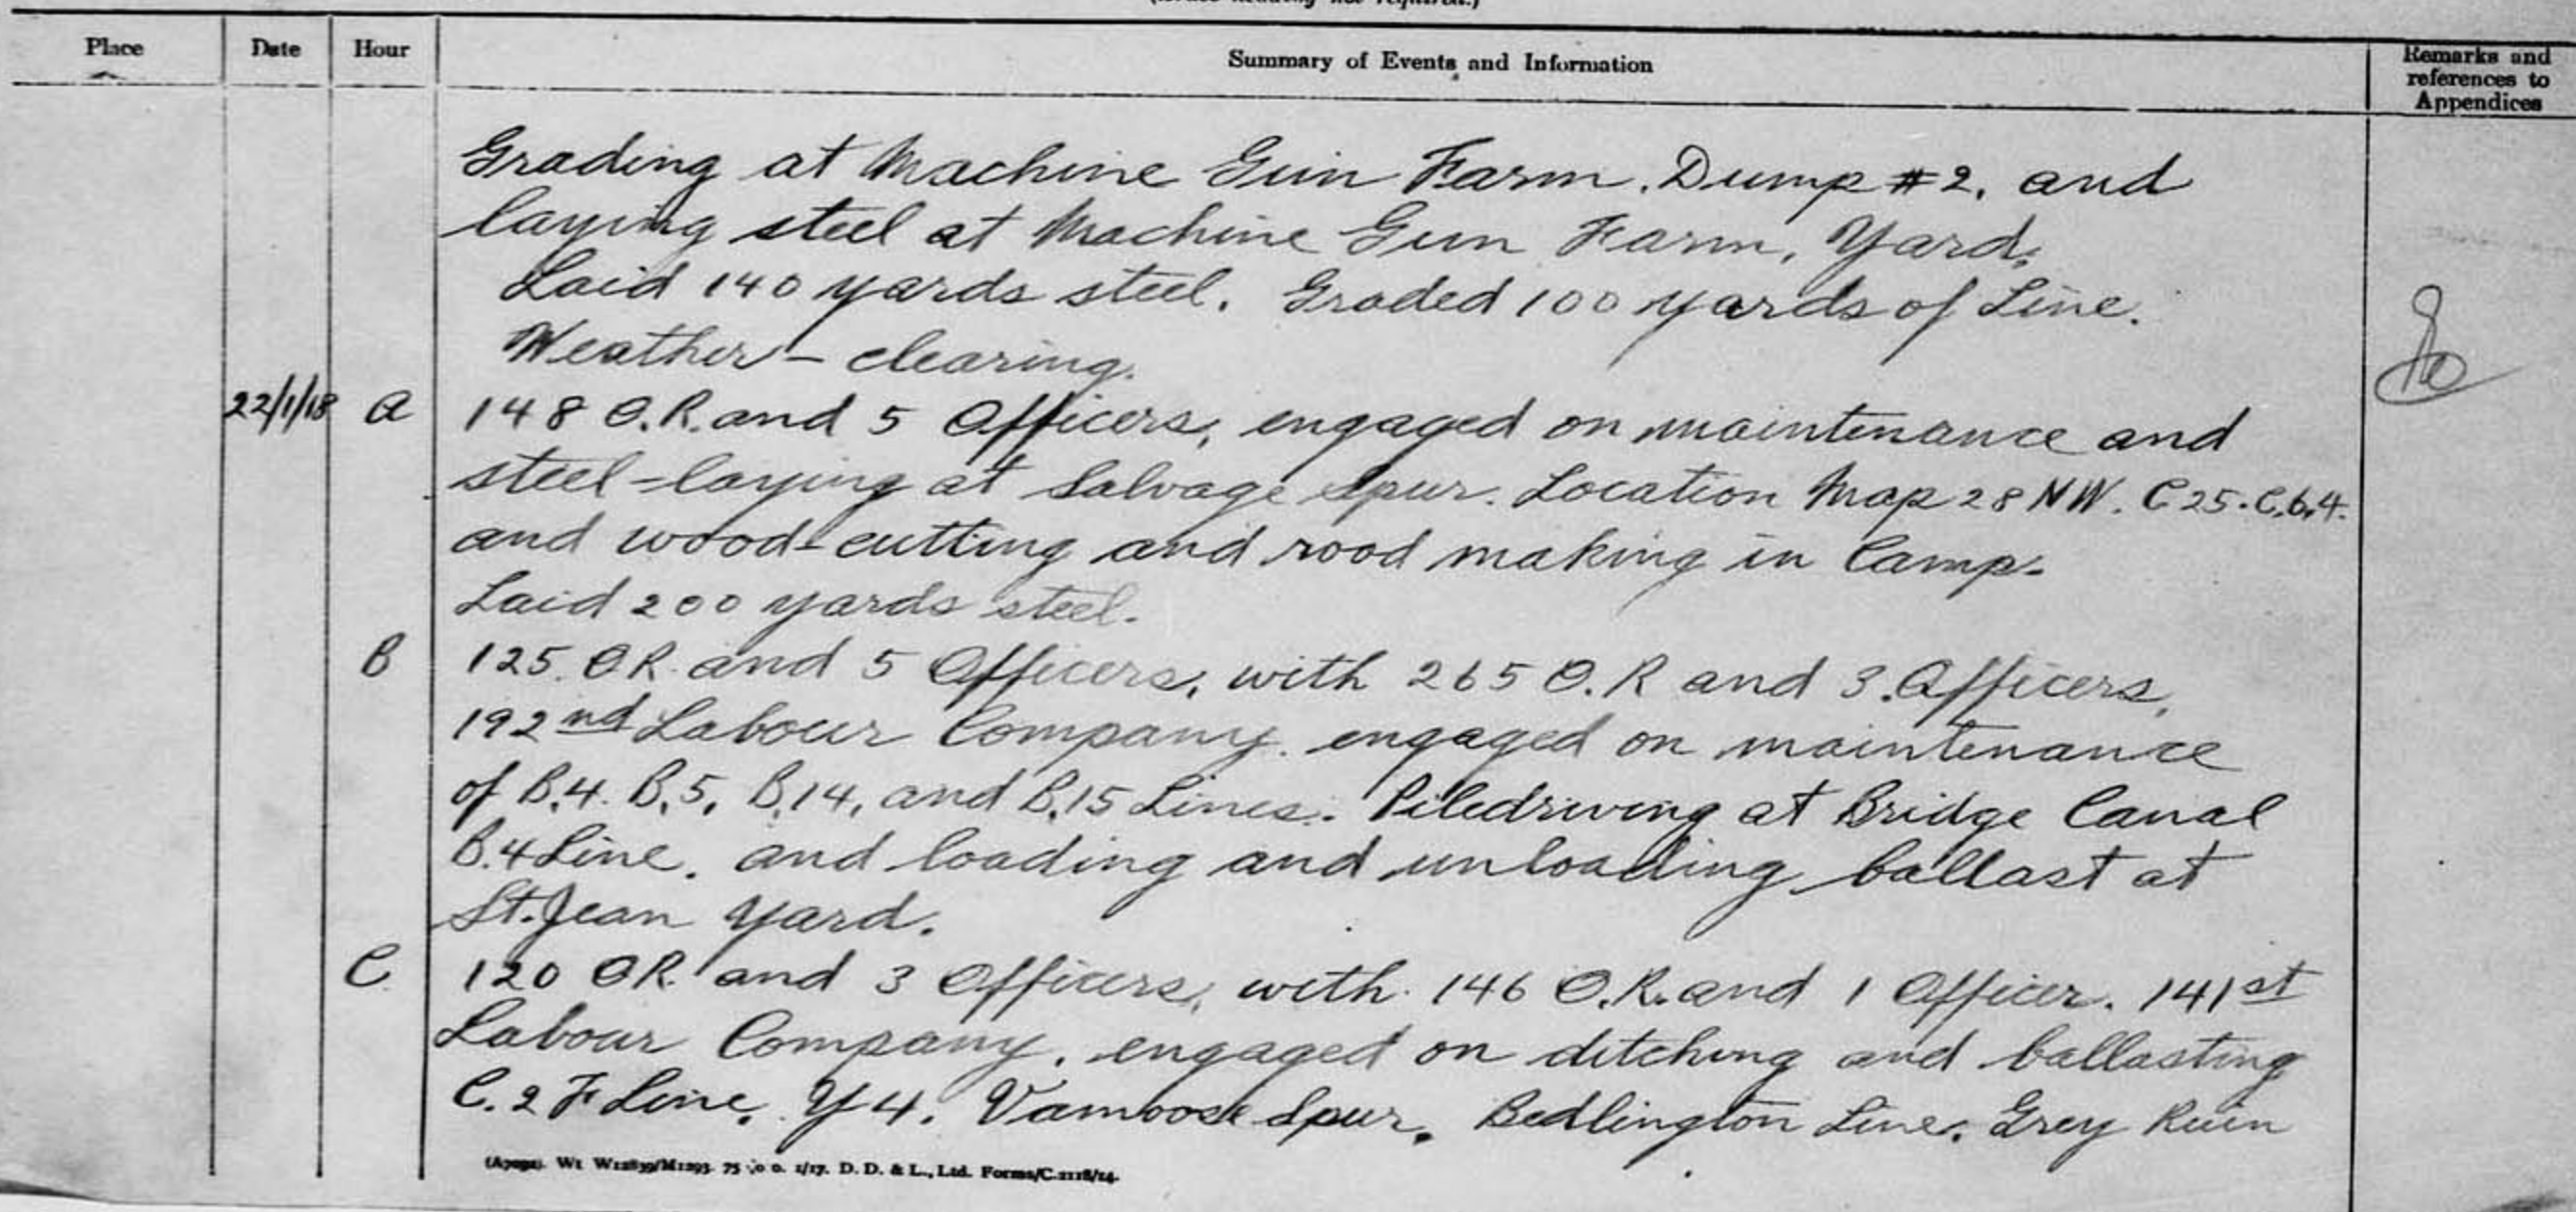 Place Date Hour Summary of Events and Information Remarks and references to Appendices
Grading at Machine Gun Farm. Dump #2. and
laying steel at Machine Gun Farm, Yard.
Laid 140 yards steel. Graded 100 yards of Line.
Weather – clearing.
22/1/18 A 148 O.R. and 5 Officers, engaged on maintenance and
steel-laying at Salvage Spur. Location Map 28 NW. C25.C.6.4.
and wood-cutting and road making in Camp.
Laid 200 yards steel.
B 125. O.R. and 5 Officers, with 265 O.R and 3. Officers,
192nd Labour Company. engaged on maintenance
of B.4. B.5. B.14, and B.15 Lines. Piledriving at Bridge Canal
B.4 Line. and loading and unloading ballast at
St. Jean Yard.
C 120 OR. and 3 Officers, with 146 O.R. and 1 Officer. 141st
Labour Company. engaged on ditching and ballasting
C.2 F Line. Y4. Vamoose Spur. Bedlington Line. Grey Ruin
D. D. & L., Ltd. Forms/C.2118/14.